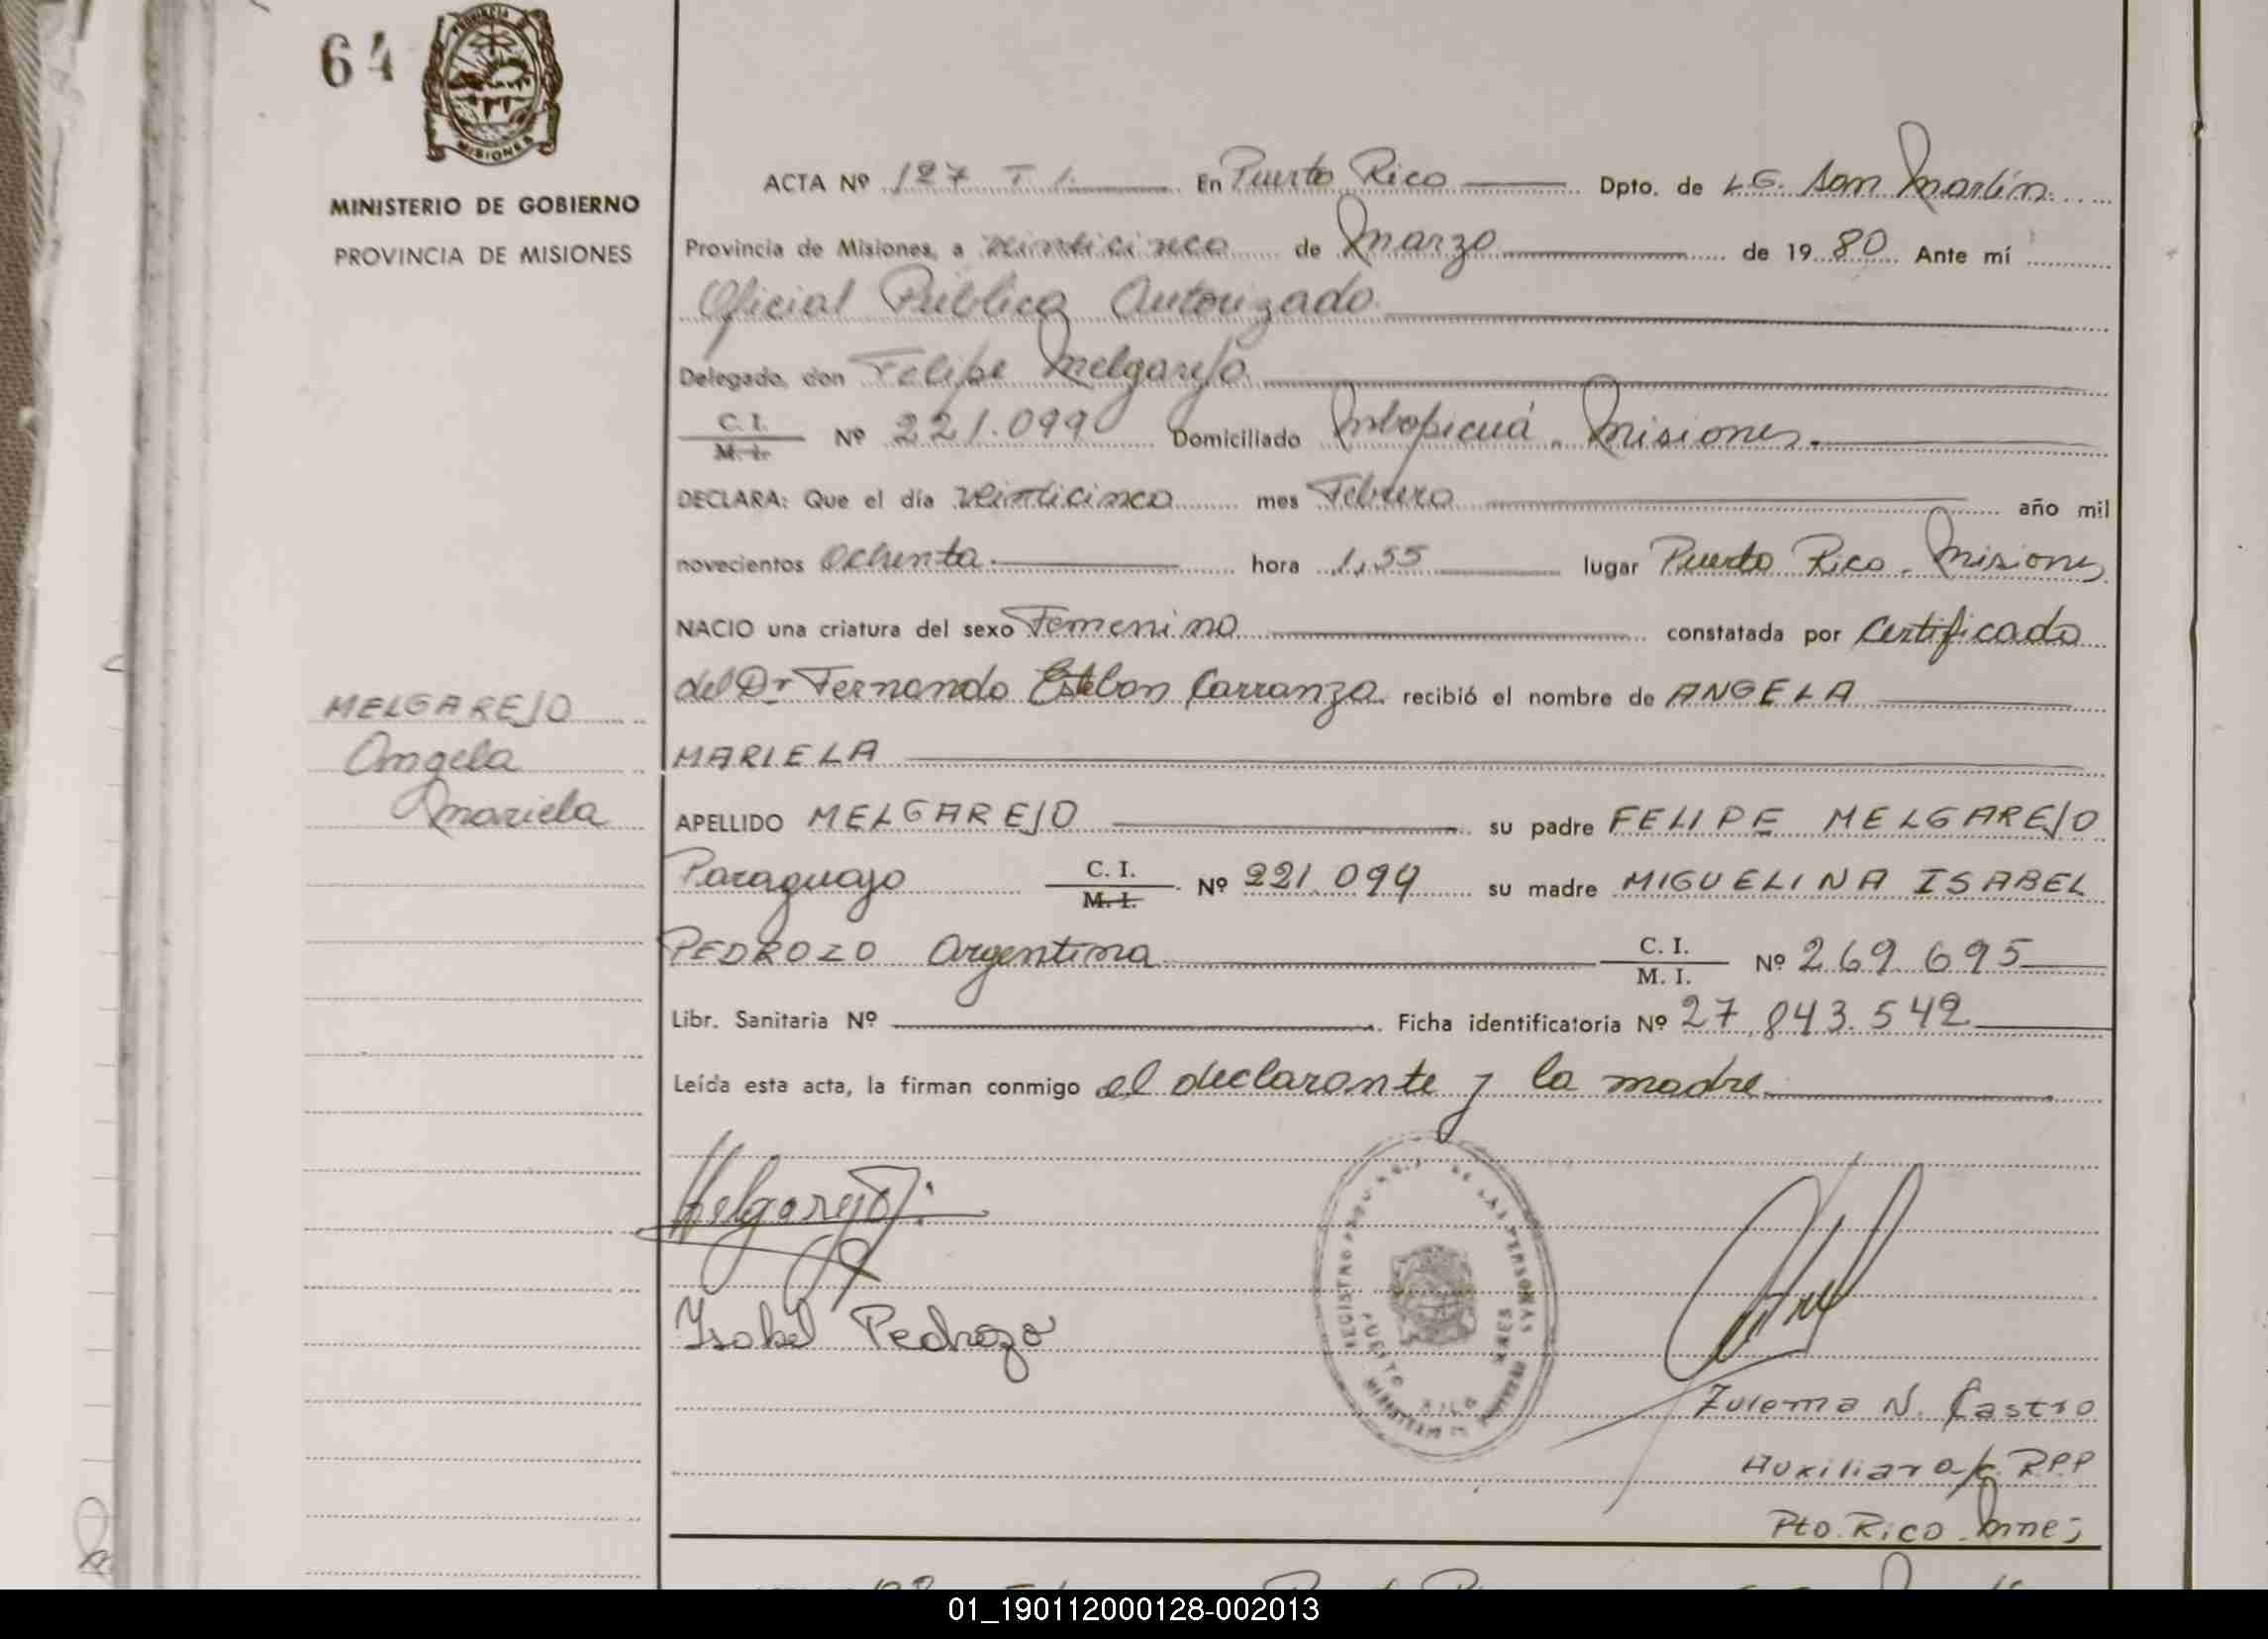 64
PROVINCIA
MISIONES
MINISTERIO DE GOBIERNO
PROVINCIA DE MISIONES
MELGAREJO
Angela
Mariela
ACTA Nº 127 T I. En Puerto Rico Dpto. de L.G. San Martín
Provincia de Misiones, a veinticinco de Marzo de 1980 Ante mí
Oficial Público Autorizado
Delegado, don Felipe Melgarejo
C. I. / M. I. Nº 221.099 Domiciliado Mbopicuá - Misiones.
DECLARA: Que el día veinticinco mes Febrero año mil
novecientos Ochenta hora 1,55 lugar Puerto Rico - Misiones
NACIO una criatura del sexo Femenino constatada por Certificado
del Dr Fernando Esteban Carranza recibió el nombre de ANGELA
MARIELA
APELLIDO MELGAREJO su padre FELIPE MELGAREJO
Paraguayo C. I. / M. I. Nº 221.099 su madre MIGUELINA ISABEL
PEDROZO Argentina C. I. / M. I. Nº 269.695
Libr. Sanitaria Nº Ficha identificatoria Nº 27.843.542
Leída esta acta, la firman conmigo el declarante y la madre
Melgarejo
Isabel Pedrozo
REGISTRO DE LAS PERSONAS
PUERTO RICO
Zulema N. Castro
Auxiliar a/c. RPP
Pto. Rico - Mnes
01_190112000128-002013